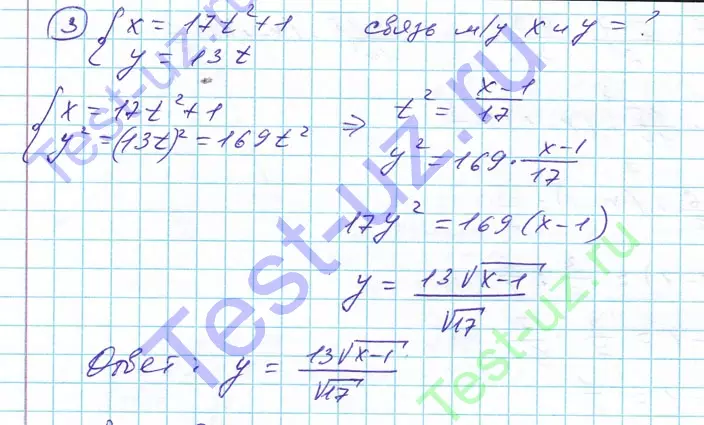 ③ { x = 17t² + 1 связь м/у x и y = ?
y = 13t
{ x = 17t² + 1 ⇒ t² = (x-1)/17
y² = (13t)² = 169t²
y² = 169 · (x-1)/17
17y² = 169(x-1)
y = 13√(x-1)/√17
Ответ: y = 13√(x-1)/√17
Test-uz.ru
Test-uz.ru
Test-uz.ru